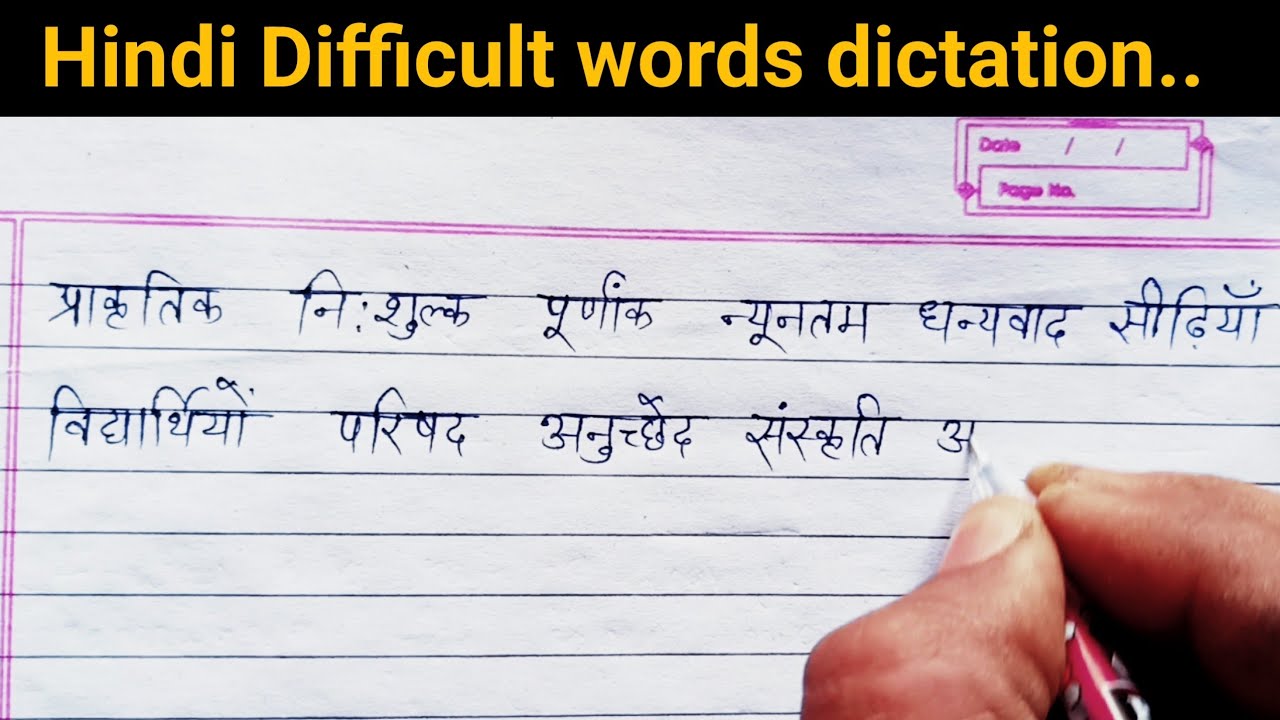 Hindi Difficult words dictation..
Date / /
Page No.
प्राकृतिक नि:शुल्क पूर्णांक न्यूनतम धन्यवाद सीढ़ियाँ
विद्यार्थियों परिषद अनुच्छेद संस्कृति अ